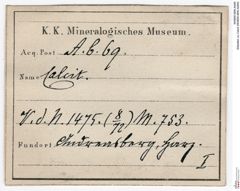 K. K. Mineralogisches Museum.
Acq. Post A. b. 69.
Name Calcit.
V. d. N. 1475. (8/72) M. 753.
Fundort Andreasberg, Harz.
I